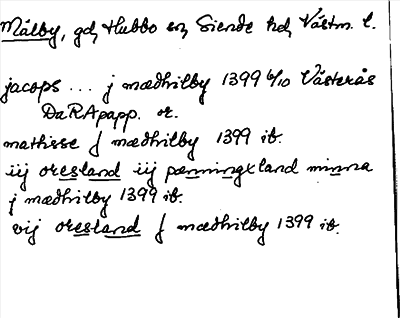 Målby, gd, Hubbo sn, Siende hd, Västm. l.
jacops ... j mædhilby 1399 6/10 Västerås
DaRApapp. or.
mathisse j mædhilby 1399 ib.
iij oresland iij pænningxland minna
j mædhilby 1399 ib.
vij oresland j mædhilby 1399 ib.